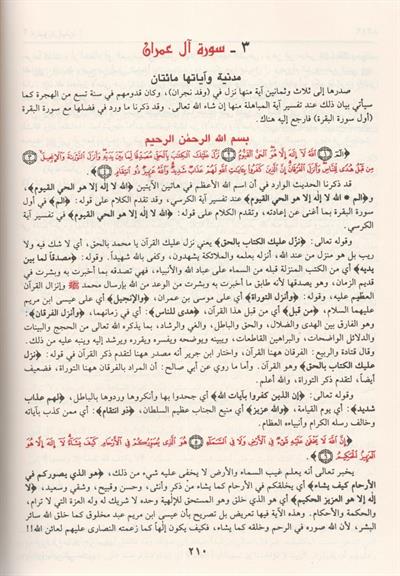 ٣ ـ سورة آل عمران
مدنية وآياتها مائتان
صدرها إلى ثلاث وثمانين آية منها نزل في (وفد نجران)، وكان قدومهم في سنة تسع من الهجرة كما
سيأتي بيان ذلك عند تفسير آية المباهلة منها إن شاء الله تعالى. وقد ذكرنا ما ورد في فضلها مع سورة البقرة
(أول سورة البقرة) فارجع إليه هناك.
بسم الله الرحمٰن الرحيم
﴿الٓمٓ ١ ٱللَّهُ لَآ إِلَٰهَ إِلَّا هُوَ ٱلۡحَيُّ ٱلۡقَيُّومُ ٢ نَزَّلَ عَلَيۡكَ ٱلۡكِتَٰبَ بِٱلۡحَقِّ مُصَدِّقٗا لِّمَا بَيۡنَ يَدَيۡهِ وَأَنزَلَ ٱلتَّوۡرَىٰةَ وَٱلۡإِنجِيلَ ٣
مِن قَبۡلُ هُدٗى لِّلنَّاسِ وَأَنزَلَ ٱلۡفُرۡقَانَۗ إِنَّ ٱلَّذِينَ كَفَرُواْ بِـَٔايَٰتِ ٱللَّهِ لَهُمۡ عَذَابٞ شَدِيدٞۗ وَٱللَّهُ عَزِيزٞ ذُو ٱنتِقَامٍ ٤﴾
قد ذكرنا الحديث الوارد في أن اسم الله الأعظم في هاتين الآيتين ﴿الله لا إله إلا هو الحي القيوم﴾،
و﴿الم * الله لا إله إلا هو الحي القيوم﴾ عند تفسير آية الكرسي، وقد تقدم الكلام على قوله: ﴿الم﴾ في أول
سورة البقرة بما أغنى عن إعادته، وتقدم الكلام على قوله: ﴿الله لا إله إلا هو الحي القيوم﴾ في تفسير آية
الكرسي.
وقوله تعالى: ﴿نزّل عليك الكتاب بالحق﴾ يعني نزل عليك القرآن يا محمد بالحق، أي لا شك فيه ولا
ريب بل هو منزل من عند الله، أنزله بعلمه والملائكة يشهدون، وكفى بالله شهيداً. وقوله: ﴿مصدقاً لما بين
يديه﴾ أي من الكتب المنزلة قبله من السماء على عباد الله والأنبياء، فهي تصدقه بما أخبرت به وبشرت في
قديم الزمان، وهو يصدقها لأنه طابق ما أخبرت به وبشرت من الوعد من الله بإرسال محمد ﷺ وإنزال القرآن
العظيم عليه، وقوله: ﴿وأنزل التوراة﴾ أي على موسى بن عمران، ﴿والإنجيل﴾ أي على عيسى ابن مريم
عليهما السلام، ﴿من قبل﴾ أي من قبل هذا القرآن، ﴿هدى للناس﴾: أي في زمانهما، ﴿وأنزل الفرقان﴾
وهو الفارق بين الهدى والضلال، والحق والباطل، والغي والرشاد، بما يذكره الله تعالى من الحجج والبينات
والدلائل الواضحات، والبراهين القاطعات، ويبينه ويوضحه ويفسره ويقرره ويرشد إليه وينبه عليه من ذلك.
وقال قتادة والربيع: الفرقان ههنا القرآن، واختار ابن جرير أنه مصدر ههنا لتقدم ذكر القرآن في قوله: ﴿نزل
عليك الكتاب بالحق﴾ وهو القرآن. وأما ما روي عن أبي صالح: أن المراد بالفرقان ههنا التوراة، فضعيف
أيضاً، لتقدم ذكر التوراة، والله أعلم.
وقوله تعالى: ﴿إن الذين كفروا بآيات الله﴾ أي جحدوا بها وأنكروها وردوها بالباطل، ﴿لهم عذاب
شديد﴾: أي يوم القيامة، ﴿والله عزيز﴾ أي منيع الجناب عظيم السلطان، ﴿ذو انتقام﴾: أي ممن كذب بآياته
وخالف رسله الكرام وأنبياءه العظام.
﴿إِنَّ ٱللَّهَ لَا يَخۡفَىٰ عَلَيۡهِ شَيۡءٞ فِي ٱلۡأَرۡضِ وَلَا فِي ٱلسَّمَآءِ ٥ هُوَ ٱلَّذِي يُصَوِّرُكُمۡ فِي ٱلۡأَرۡحَامِ كَيۡفَ يَشَآءُۚ لَآ إِلَٰهَ إِلَّا هُوَ
ٱلۡعَزِيزُ ٱلۡحَكِيمُ ٦﴾
يخبر تعالى أنه يعلم غيب السماء والأرض لا يخفى عليه شيء من ذلك، ﴿هو الذي يصوركم في
الأرحام كيف يشاء﴾ أي يخلقكم في الأرحام كما يشاء من ذكر وأنثى، وحسن وقبيح، وشقي وسعيد، ﴿لا
إله إلا هو العزيز الحكيم﴾ أي هو الذي خلق وهو المستحق للإلٰهية وحده لا شريك له وله العزة التي لا ترام،
والحكمة والأحكام. وهذه الآية فيها تعريض بل تصريح بأن عيسى ابن مريم عبد مخلوق كما خلق الله سائر
البشر، لأن الله صوره في الرحم وخلقه كما يشاء، فكيف يكون إلٰهاً كما زعمته النصارى عليهم لعائن الله!!
٢١٠